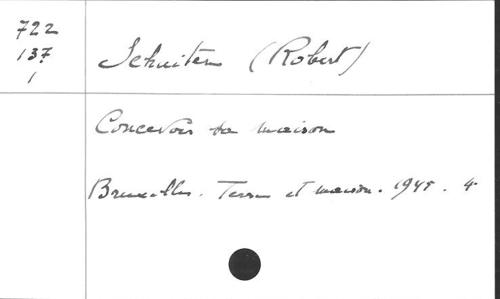 722
137
1
Schuiten (Robert)
Concevoir sa maison
Bruxelles. Terre et maison. 1945. 4